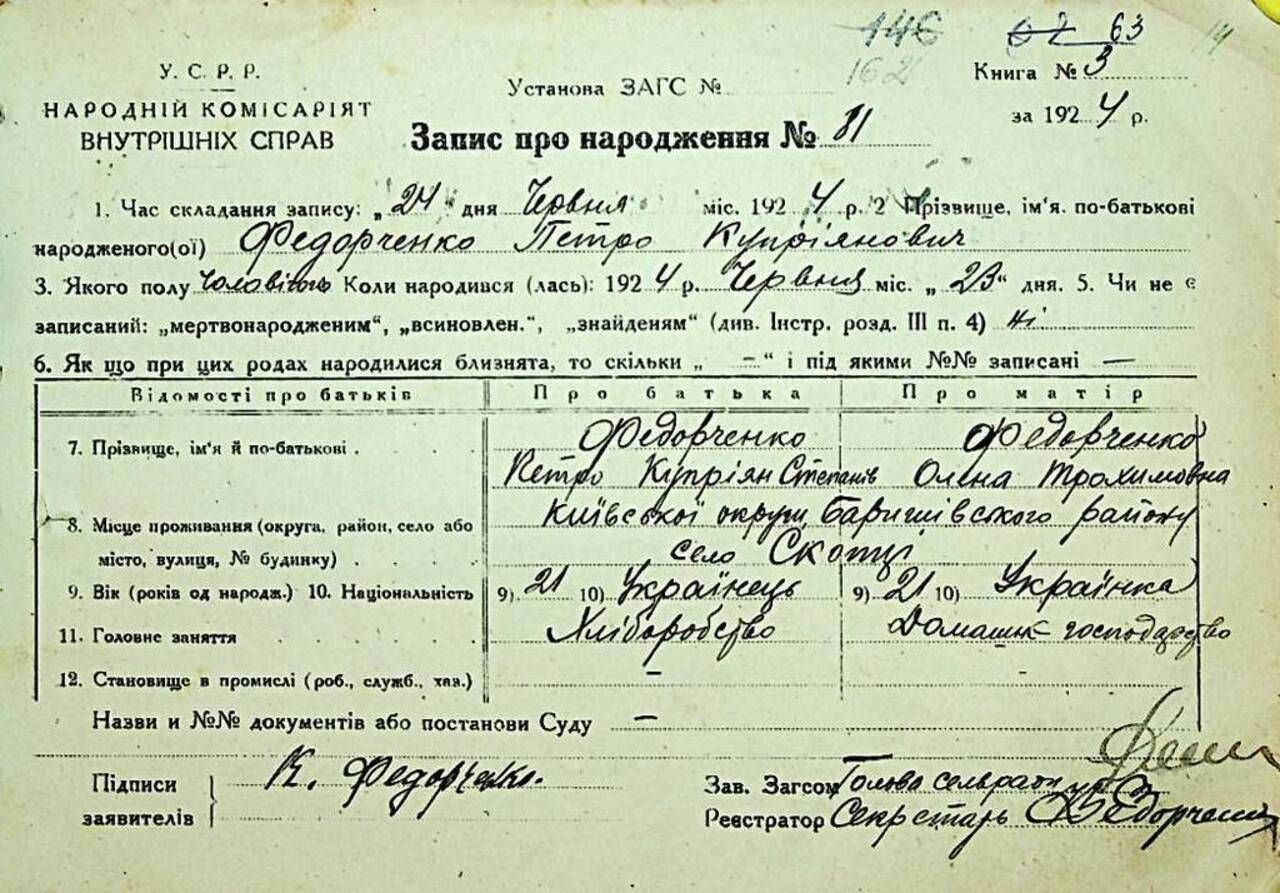 146 62 63 14
162
У. С. Р. Р.
НАРОДНІЙ КОМІСАРІЯТ
ВНУТРІШНІХ СПРАВ
Установа ЗАГС №
Книга № 3
за 1924 р.
Запис про народження № 81
1. Час складання запису: „24" дня Червня міс. 1924 р. 2 Прізвище, ім'я, по-батькові
народженого(ої) Федорченко Петро Купріянович
3. Якого полу Чоловічого Коли народився (лась): 1924 р. Червня міс. „23" дня. 5. Чи не є
записаний: „мертвонародженим", „всиновлен.", „знайденям" (див. Інстр. розд. III п. 4) ні
6. Як що при цих родах народилися близнята, то скільки „ – " і під якими №№ записані —
Відомості про батьків Про батька Про матір
7. Прізвище, ім'я й по-батькові . Федорченко Федорченко
Петро Купріян Степанів Олена Трохимовна
8. Місце проживання (округа, район, село або Київської округи, Баришівського району
місто, вулиця, № будинку) . село Скопці
9. Вік (років од народж.) 10. Національність 9) 21 10) Українець 9) 21 10) Українка
11. Головне заняття Хліборобство Домашнє господарство
12. Становище в промислі (роб., служб., хаз.) – –
Назви и №№ документів або постанови Суду –
Підписи
заявителів
К. Федорченко.
Зав. Загсом Голова сельради
Реєстратор Секретарь Федорченко